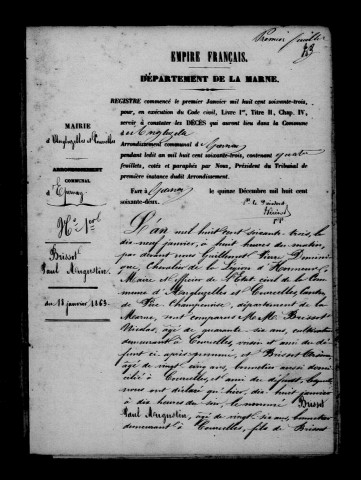 Premier feuillet
EMPIRE FRANÇAIS.
DÉPARTEMENT DE LA MARNE.
REGISTRE commencé le premier Janvier mil huit cent soixante-trois,
pour, en exécution du Code civil, Livre 1er, Titre II, Chap. IV,
servir à constater les DÉCÈS qui auront lieu dans la Commune
Arrondissement communal d'Epernay
pendant ledit an mil huit cent soixante-trois, contenant quatre
feuillets, cotés et paraphés par Nous, Président du Tribunal de
première instance dudit Arrondissement.
FAIT à Epernay le quinze Décembre mil huit cent
soixante-deux.
MAIRIE
ARRONDISSEMENT
COMMUNAL
d'Epernay
No 1er
Brisset
Paul Augustin
du 18 janvier 1863
L'an mil huit cent soixante trois, le
dix-neuf janvier, à huit heures du matin,
par devant nous Guillemot Pierre Domini-
que, Chevalier de la Légion d'Honneur,
Maire et officier de l'état civil de la Com-
mune d'Angluzelles et Courcelles, canton
de Fère Champenoise, département de la
Marne, ont comparu MM. Brisset
Nicolas, âgé de quarante-six ans, cultivateur
demeurant à Courcelles, voisin et ami du dé-
funt ci après nommé, et Brisset
âgé de vingt cinq ans, aussi domi-
cilié à Courcelles, et ami du défunt, lesquels
nous ont déclaré qu'hier, dix-huit janvier
à dix heures du soir, le nommé Brisset
Paul Augustin, âgé de vingt-six ans,
demeurant à Courcelles, fils de Brisset